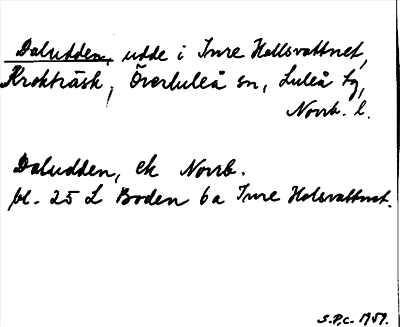 Daludden, udde i Inre Hallsvattnet,
Krokträsk, Överluleå sn, Luleå tg,
Norrb. l.
Daludden, ek Norrb.
bl. 25 L Boden 6a Inre Holsvattnet.
S.P.C. 1959.